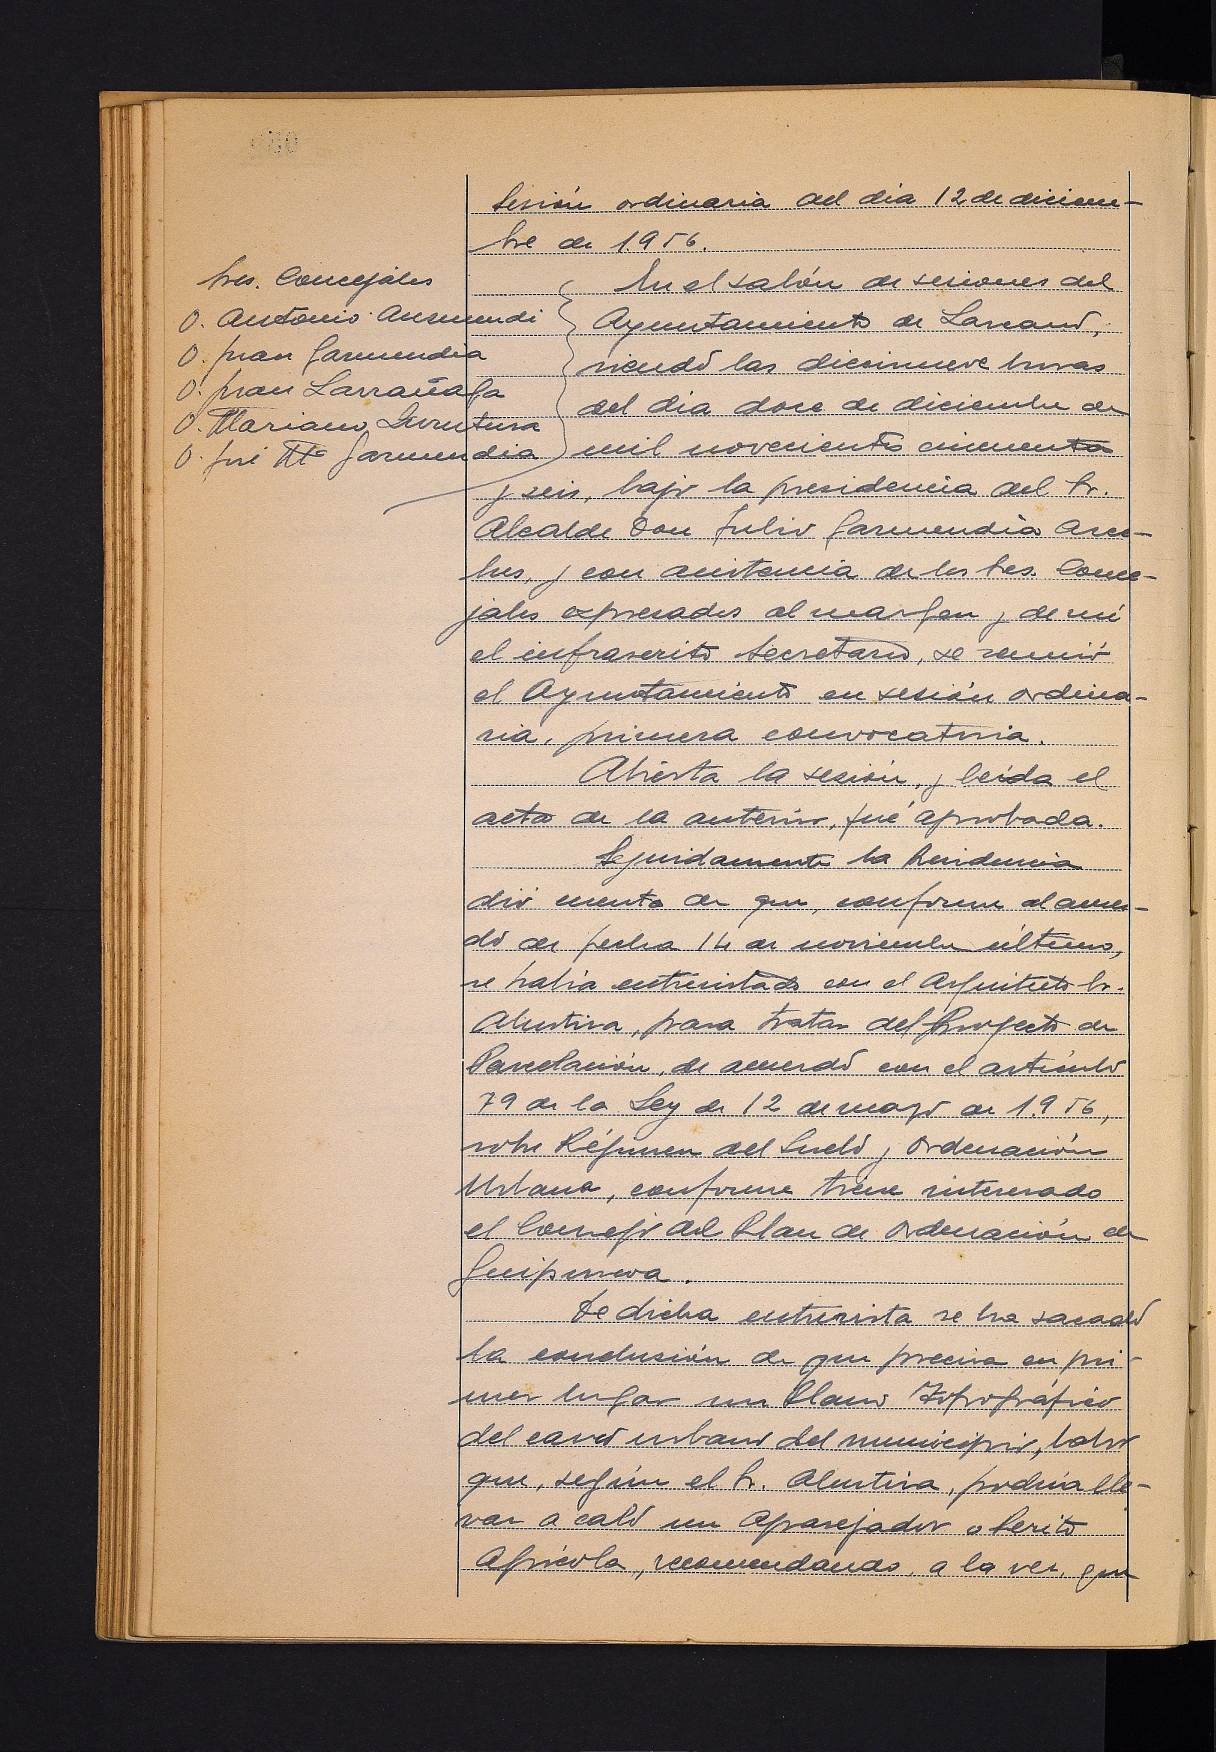 Sesión ordinaria del dia 12 de diciem-
bre de 1.956.
Sres. Concejales
D. Antonio Ausmendi
D. Juan Garmendia
D. Juan Larrañaga
D. Mariano
D. José Mª Garmendia
En el salón de sesiones del
Ayuntamiento de Lazcano,
siendo las diecinueve horas
del dia doce de diciembre de
mil novecientos cincuenta
y seis, bajo la presidencia del Sr.
Alcalde Don Julio Garmendia Arce-
lus, y con asistencia de los Sres. Conce-
jales expresados al margen y de mi
el infrascrito Secretario, se reunió
el Ayuntamiento en sesión ordina-
ria, primera convocatoria.
Abierta la sesión, y leída el
acta de la anterior, fué aprobada.
Seguidamente la Presidencia
dió cuenta de que, conforme al acuer-
do de fecha 14 de noviembre último,
se había entrevistado con el Arquitecto Sr.
Alustiza, para tratar del Proyecto de
Parcelación, de acuerdo con el artículo
79 de la Ley de 12 de mayo de 1.956,
sobre Régimen del Suelo y Ordenación
Urbana, conforme tiene interesado
el Consejo del Plan de Ordenación de
Guipuzcoa.
De dicha entrevista se ha sacado
la conclusión de que precisa en pri-
mer lugar un Plano Topográfico
del casco urbano del municipio, labor
que, según el Sr. Alustiza, podría lle-
var a cabo un Aparejador o Perito
Agrícola, recomendando, a la vez, que